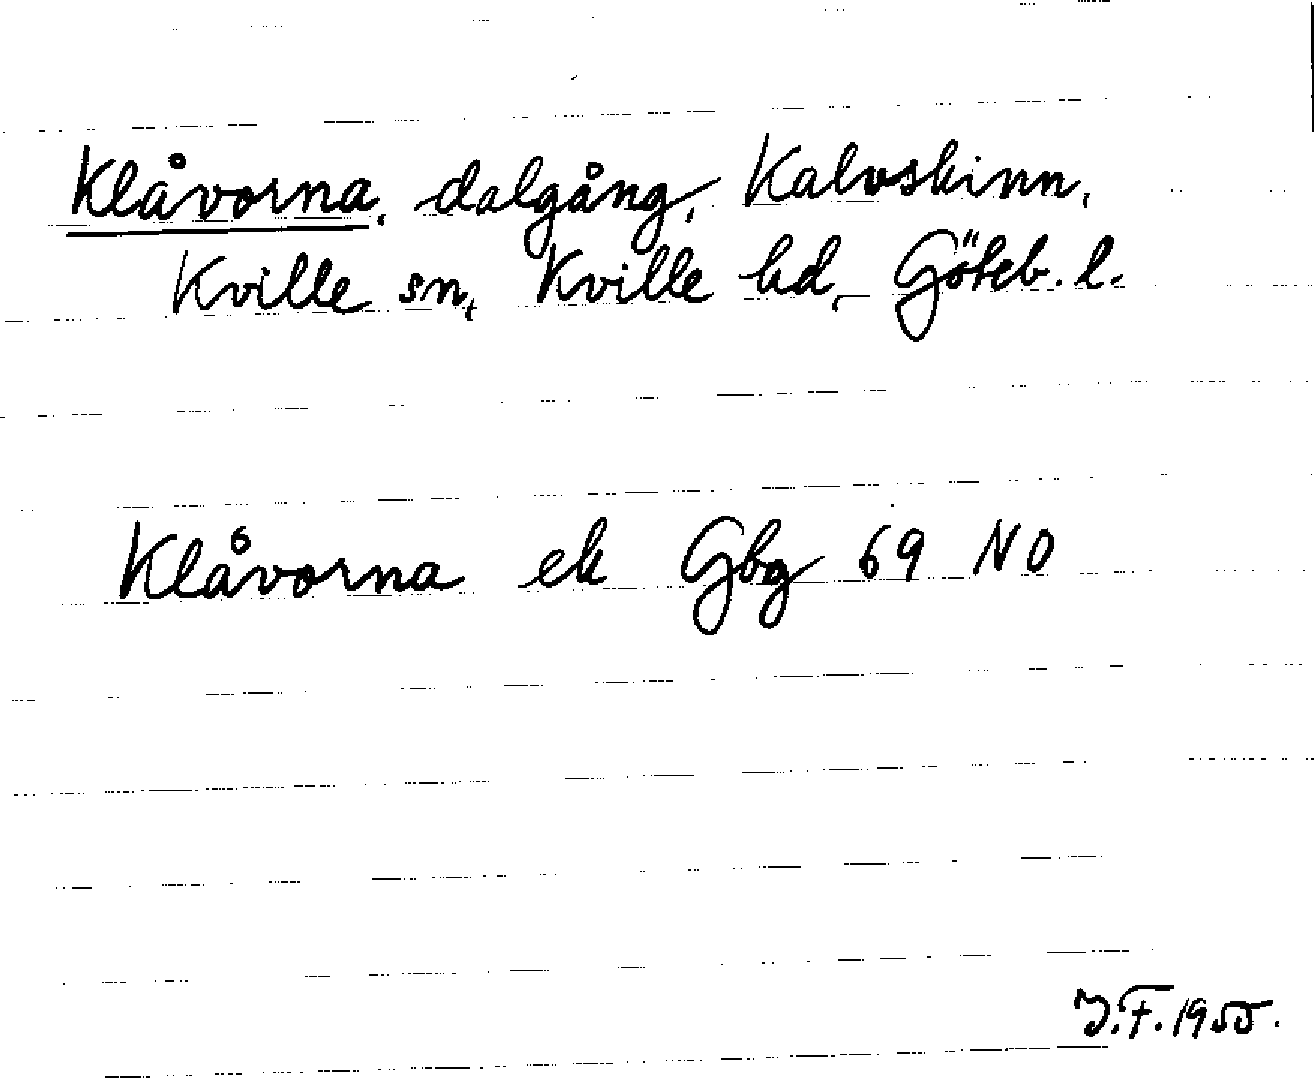 Klåvorna, dalgång, Kalvskinn,
Kville sn, Kville hd, Göteb. l.
Klåvorna ek Gbg 69 NO
J.F. 1955.